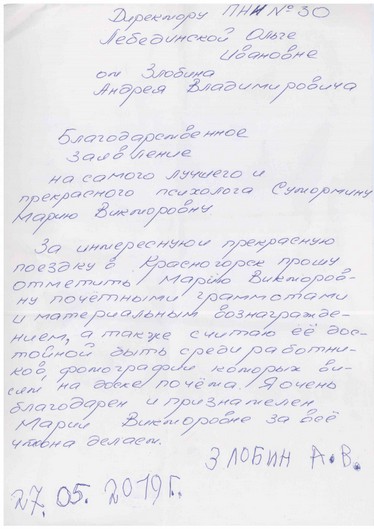 Директору ПНИ № 30
Лебединской Ольге
Ивановне
от Злобина
Андрея Владимировича
Благодарственное
заявление
на самого лучшего и
прекрасного психолога Сутормину
Марию Викторовну.
За интересную и прекрасную
поездку в Красногорск прошу
отметить Марию Викторов-
ну почётными грамотами
и материальным вознагражде-
нием, а также считаю её дос-
тойной быть среди работни-
ков, фотографии которых ви-
сят на доске почёта. Я очень
благодарен и признателен
Марии Викторовне за всё
что она делает.
ЗЛОБИН А.В.
27.05.2019г.